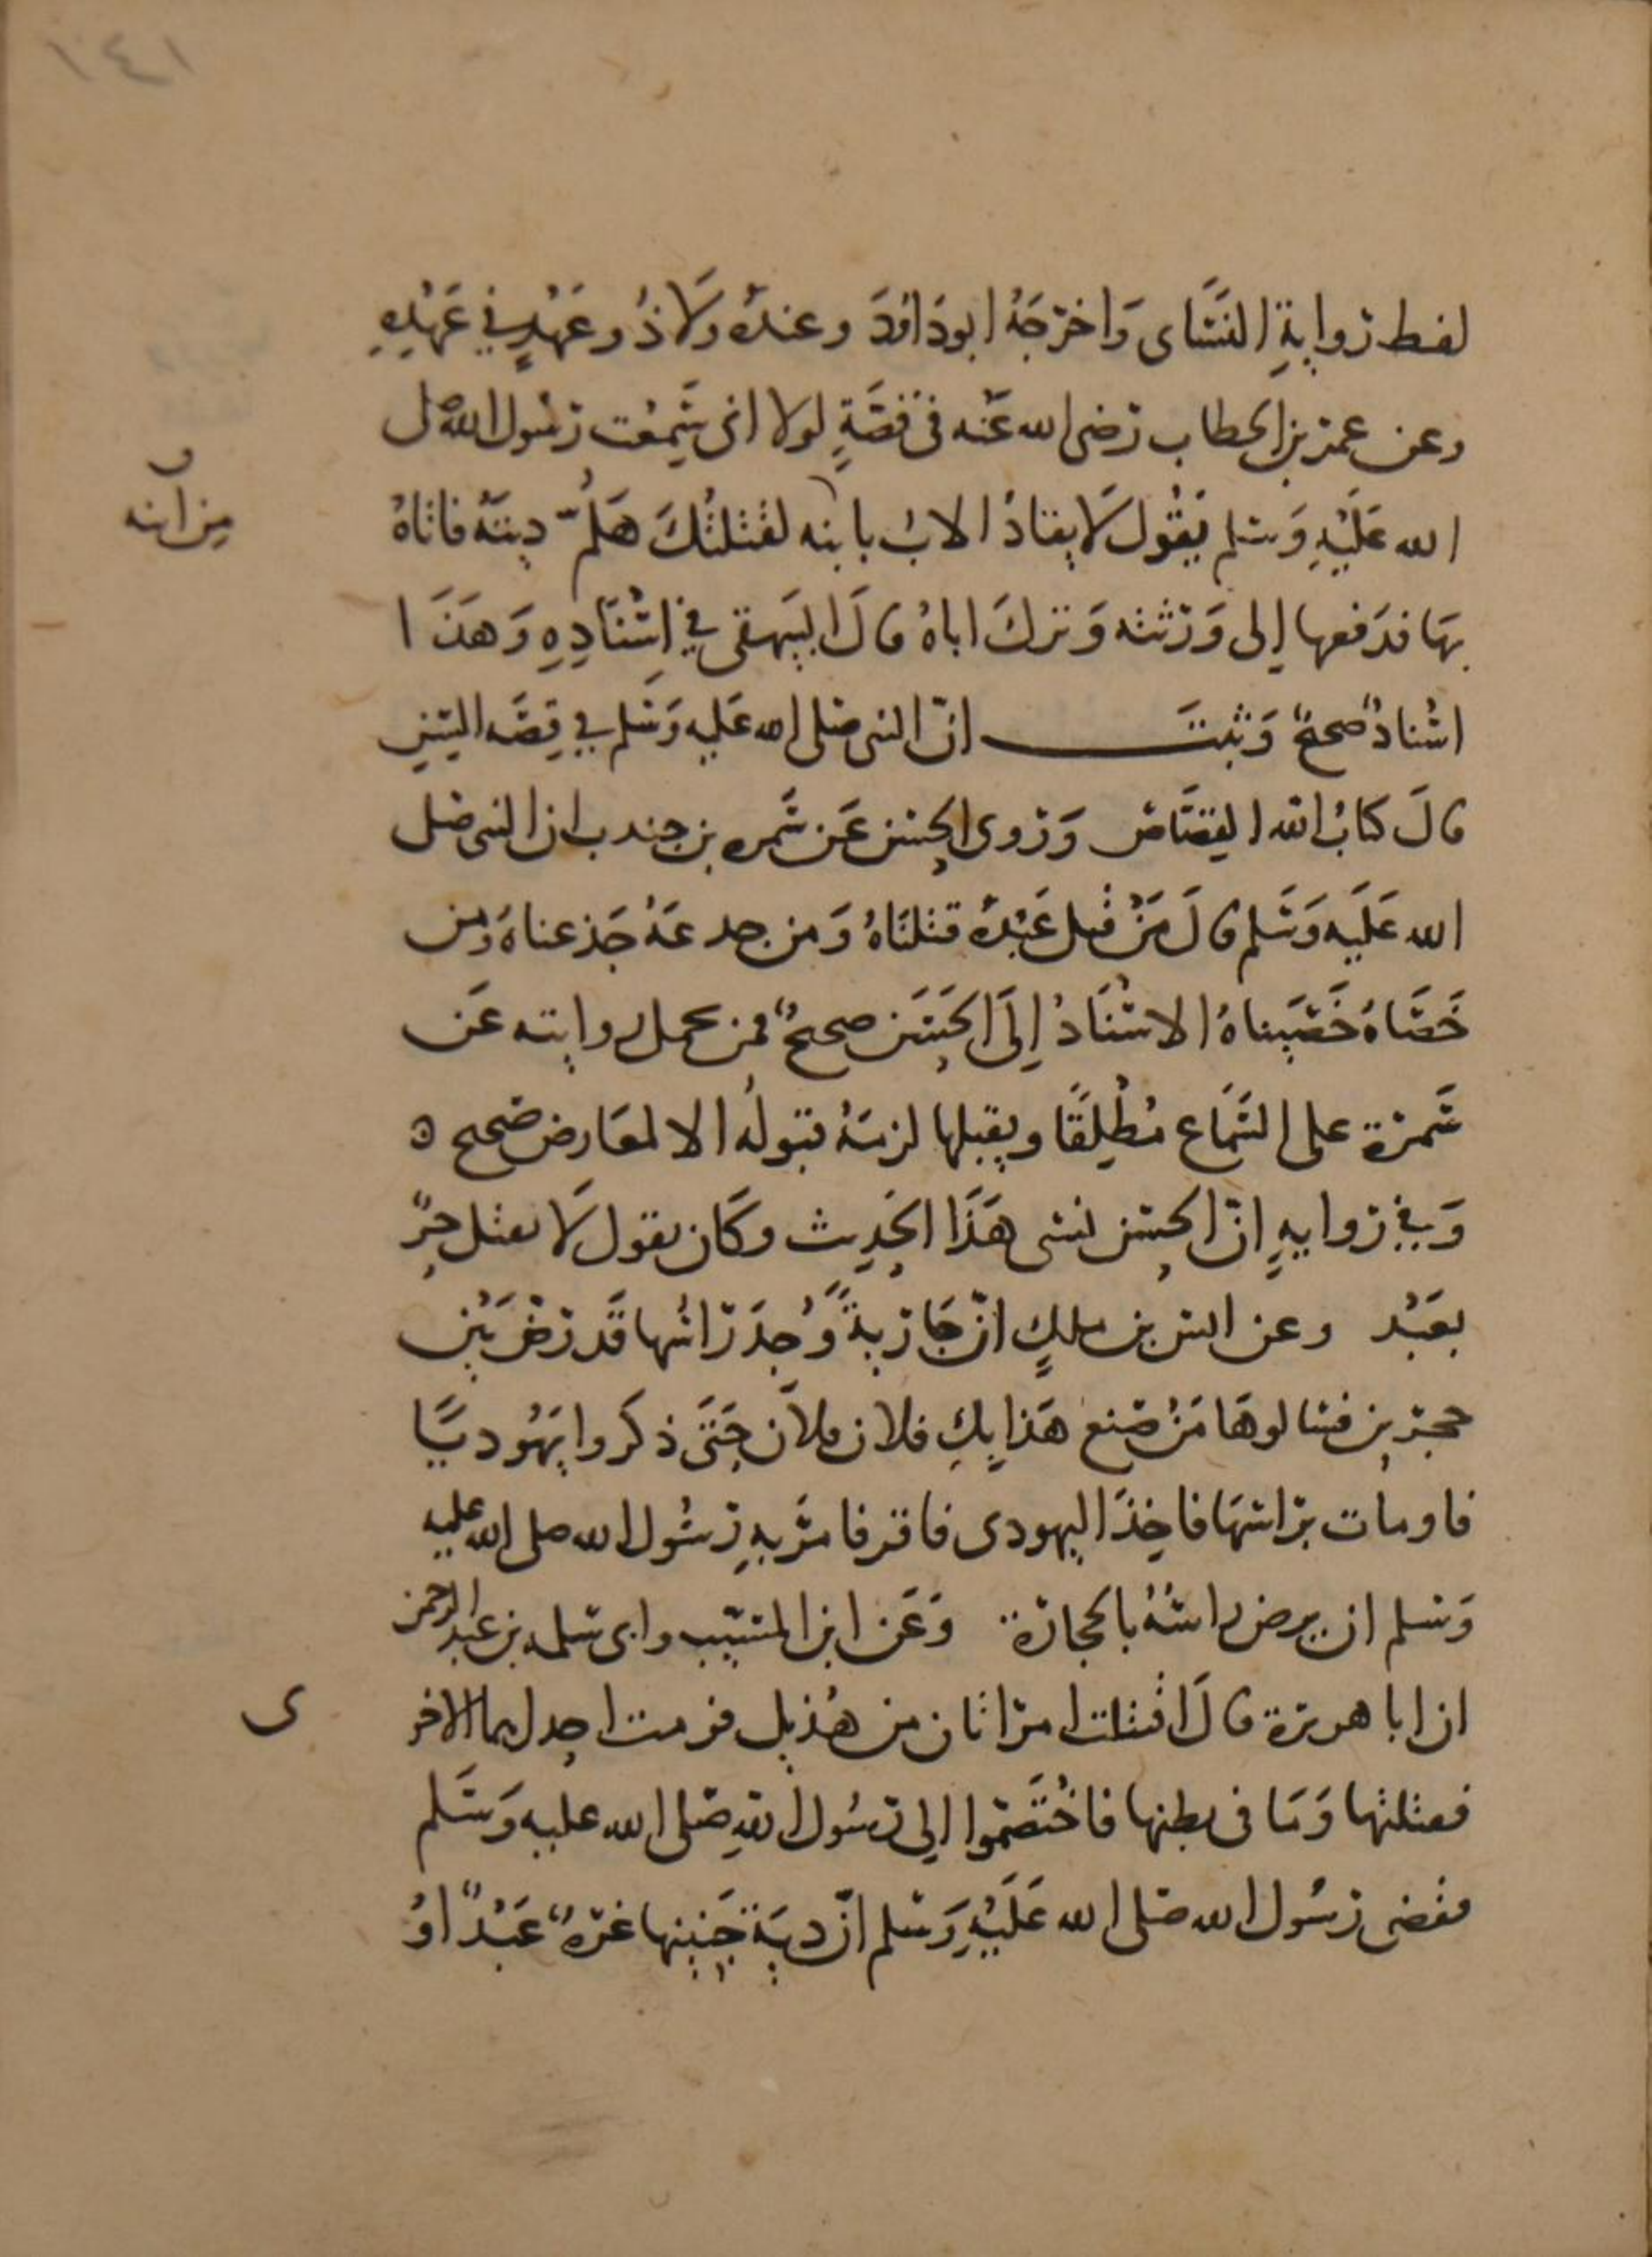 ١٤١
لفظ رواية النَّسَاى وَاخرَجَهُ ابودَاودَ وعندهُ وَلَا ذُو عَهْدٍ فِي عَهْدِهِ
وعن عمر بن الخطاب رضى الله عَنه فى قصَّةٍ لولا انى سَمِعْت رسُول الله صل
الله عَلَيْهِ وَسلم يَقُول لَا يقادُ الابُ بابنه لقتلتُكَ هَلُمَّ ديتَهُ فاتاهُ
من ابنه
بهَا فدَفعها إلى وَرَثته وَتركَ اباهُ قالَ البيَهقى فِي اسْنَادِهِ وَهَذَا
اسْنادٌ صحيحٌ وَثبتَ انّ النبى صلى الله عَليه وَسَلم فِي قِصَّه السِّن
قالَ كتابُ الله القِصَاصُ وَروى الحسَن عَن سَمره بن جندب ان النبى صلى
الله عَلَيه وَسَلم قالَ مَنْ قتل عَبْدهُ قتلنَاهُ وَمن جدعهُ جَدعناهُ وَمن
خَصَاهُ خَصَيناهُ الاسْنَادُ إِلَى الحَسَن صحيحٌ فمن يحمل روايته عَن
سَمرَة على السَّمَاع مُطْلِقًا ويقبلها لزمَهُ قبولهُ الا لمعَارض صَحيح ٥
وَفِي روايهٍ انّ الحسَن نسى هَذَا الحَدِيث وكَان يقول لَا يقتل حرٌّ
بعَبْد وعن انس بن ملكٍ انّ جَاريةً وُجِدَ رَاسُها قَد رُضَّ بَيْن
حجرين فسَالوهَا مَنْ صنع هَذا بِكِ فلان فلان حَتَى ذكروا يَهُوديًّا
فاومات برَاسهَا فاخِذَ اليهودى فاقر فامرَ بهِ رسُول الله صلى الله عليه
وَسلم ان يرض راسُهُ بالحجارة وَعَن ابن المسَيّب وابى سَلمه بن عبد الرحمن
ان ابا هريرة قالَ اقتتلت امرَاتان من هُذيل فرمت احدَاهما الاخر
ى
فقتلتها وَمَا فى بطنها فاخْتَصَمُوا إلى رَسُول اللهِ صَلى الله عليه وَسَلم
فقضى رسُول الله صَلى الله عَلَيْهِ وَسَلم انّ ديَةَ جَنينها غرّهٌ عَبْدٌ اوْ